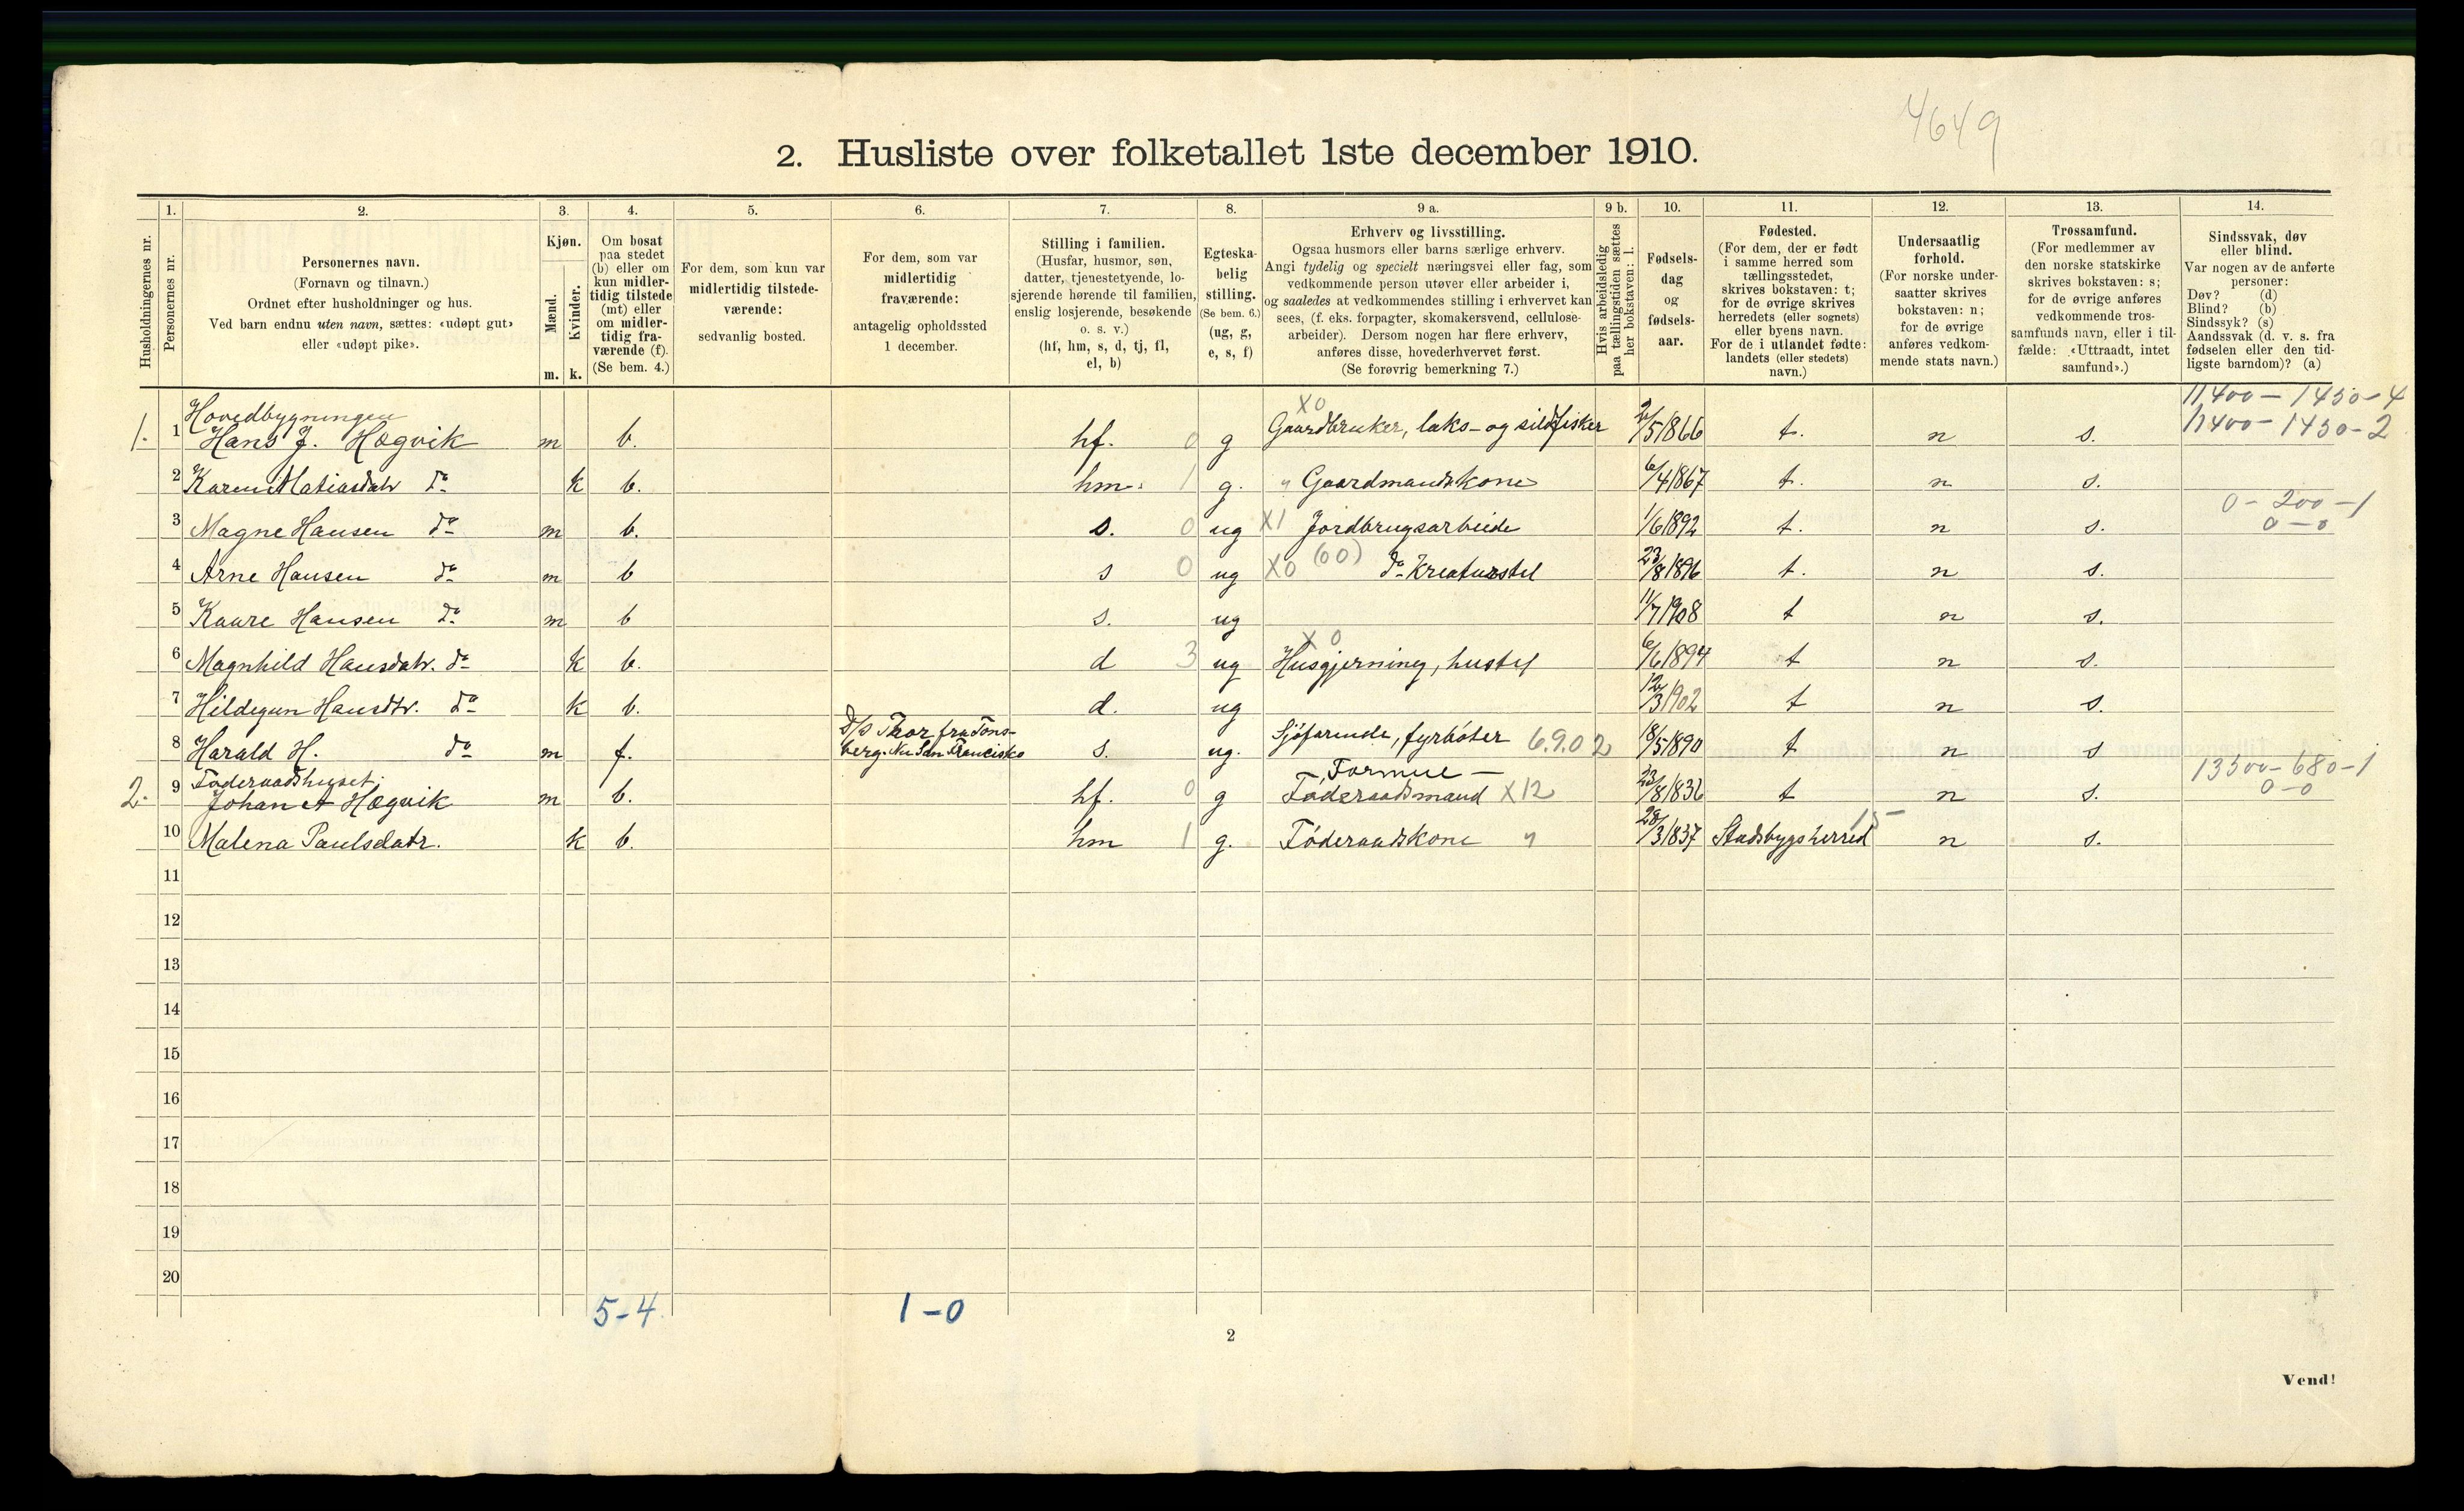 4649
2. Husliste over folketallet 1ste december 1910.
Husholdningernes nr.
1.
Personernes nr.
2.
Personernes navn.
(Fornavn og tilnavn.)
Ordnet efter husholdninger og hus.
Ved barn endnu uten navn, sættes: «udøpt gut»
eller «udøpt pike».
3.
Kjøn.
Mænd.
Kvinder.
m. k.
4.
Om bosat
paa stedet
(b) eller om
kun midler-
tidig tilstede
(mt) eller
om midler-
tidig fra-
værende (f).
(Se bem. 4.)
5.
For dem, som kun var
midlertidig tilstede-
værende:
sedvanlig bosted.
6.
For dem, som var
midlertidig
fraværende:
antagelig opholdssted
1 december.
7.
Stilling i familien.
(Husfar, husmor, søn,
datter, tjenestetyende, lo-
sjerende hørende til familien,
enslig losjerende, besøkende
o. s. v.)
(hf, hm, s, d, tj, fl,
el, b)
8.
Egteska-
belig
stilling.
(Se bem. 6.)
(ug, g,
e, s, f)
9 a.
Erhverv og livsstilling.
Ogsaa husmors eller barns særlige erhverv.
Angi tydelig og specielt næringsvei eller fag, som
vedkommende person utøver eller arbeider i,
og saaledes at vedkommendes stilling i erhvervet kan
sees, (f. eks. forpagter, skomakersvend, cellulose-
arbeider). Dersom nogen har flere erhverv,
anføres disse, hovederhvervet først.
(Se forøvrig bemerkning 7.)
9 b.
Hvis arbeidsledig
paa tællingstiden sættes
her bokstaven: l.
10.
Fødsels-
dag
og
fødsels-
aar.
11.
Fødested.
(For dem, der er født
i samme herred som
tællingsstedet,
skrives bokstaven: t;
for de øvrige skrives
herredets (eller sognets)
eller byens navn.
For de i utlandet fødte:
landets (eller stedets)
navn.)
12.
Undersaatlig
forhold.
(For norske under-
saatter skrives
bokstaven: n;
for de øvrige
anføres vedkom-
mende stats navn.)
13.
Trossamfund.
(For medlemmer av
den norske statskirke
skrives bokstaven: s;
for de øvrige anføres
vedkommende tros-
samfunds navn, eller i til-
fælde: «Uttraadt, intet
samfund».)
14.
Sindssvak, døv
eller blind.
Var nogen av de anførte
personer:
Døv? (d)
Blind? (b)
Sindssyk? (s)
Aandssvak (d. v. s. fra
fødselen eller den tid-
ligste barndom)? (a)
Hovedbygningen X0 11400-1450-4
1. 1 Hans J. Hægvik m b. hf. 0 g Gaardbruker, laks- og sildfisker 2/5 1866 t. n s. 11400-1450-2
2 Karen Matiasdatr do k b. hm. 1 g. " Gaardmandskone 6/4 1867 t. n s.
0-200-1
3 Magne Hansen do m b. s. 0 ug X1 Jordbrugsarbeide 1/6 1892 t. n s. 0-0
4 Arne Hansen do m b s 0 ug X0 (00) do Kreaturstel 23/8 1896 t. n s.
5 Kaare Hansen do m b s. ug 11/7 1908 t n s.
6 Magnhild Hansdatr. do k b. d 3 ug X0 Husgjerning, hustel 6/6 1894 t n s.
7 Hildegun Hansdtr. do k b. d. ug 12/3 1902 t n s.
D/S Thor fra Tøns-
8 Harald H. do m f. berg. Nu San Francisko s. ug. Sjøfarende, fyrbøter 6.9.02 18/5 1890 t n s
Føderaadshuset. Formue — 13500-680-1
2. 9 Johan A Hægvik m b. hf. 0 g Føderaadsmand X12 23/8 1836 t n s. 0-0
10 Malena Paulsdatr. k b. hm 1 g. Føderaadskone " 28/3 1837 Stadsbygs herred 15 n s.
11
12
13
14
15
16
17
18
19
20
5-4 1-0
2
Vend!